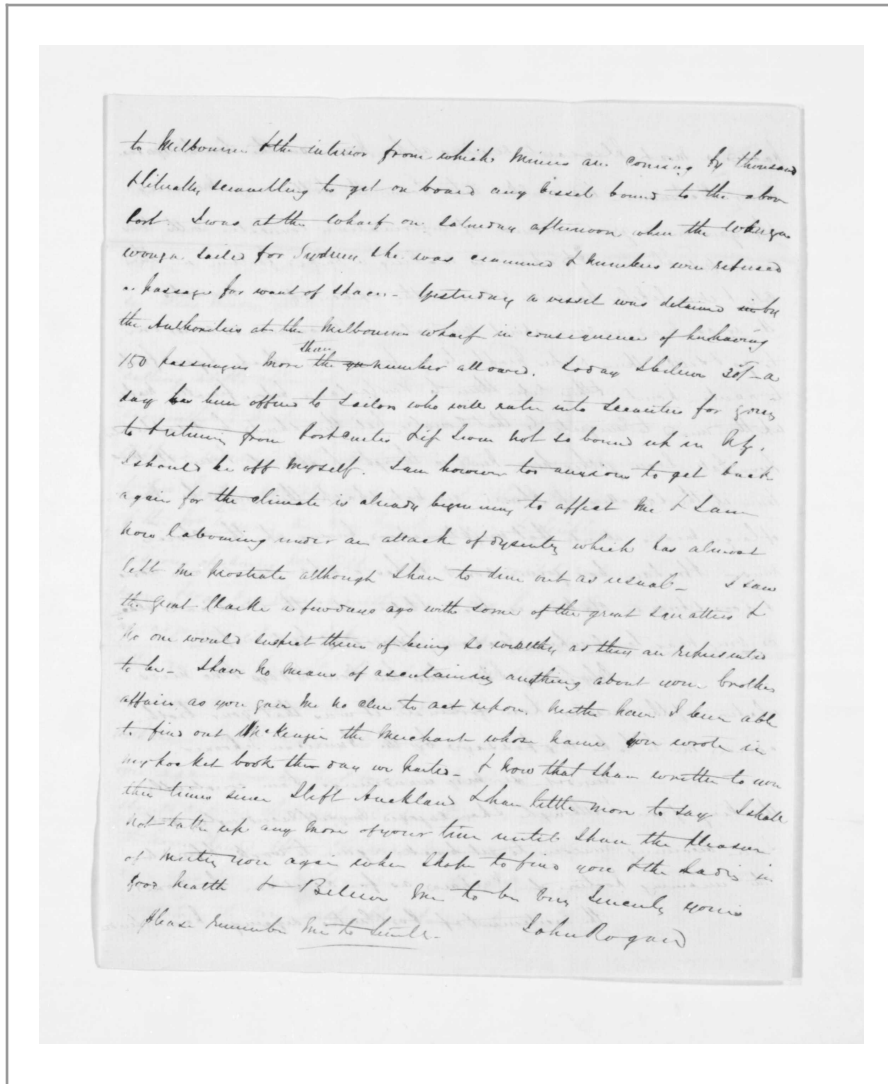 to Melbourne & the interior from which miners are coming by thousand
& literally scrambling to get on board any vessel bound to the above
Port. I was at the wharf on Saturday afternoon when the Wonga
wonga sailed for Sydney she was examined & numbers were refused
a passage for want of space - Yesterday a vessel was detained by
the Authorities at the Melbourne wharf in consequence of her having
150 passengers more than the number allowed. Today I believe 20/- a
day has been offered to Sailors who will enter into Securities for going
to & returning from Port Curtis & if I was not so bound up in
I should be off myself. I am however too anxious to get back
again for the climate is already beginning to affect me & I am
now labouring under an attack of dysentry which has almost
left me prostrate although I have to dine out as usual - I saw
the great Clarke a few days ago with some of the great squatters &
no one would suspect them of being so wealthy as they are represented
to be - I have no means of ascertaining anything about your brothers
affairs as you gave me no clue to act upon. Neither have I been able
to find out McKenzie the Merchant whose name you wrote in
my pocket book the day we parted - & now that I have written to you
three times since I left Auckland & have little more to say I shall
not take up any more of your time until I have the pleasure
of meeting you again when I hope to find you & the Ladies in
good health & Believe me to be very Sincerely yours
John Rogan
Please remember me to